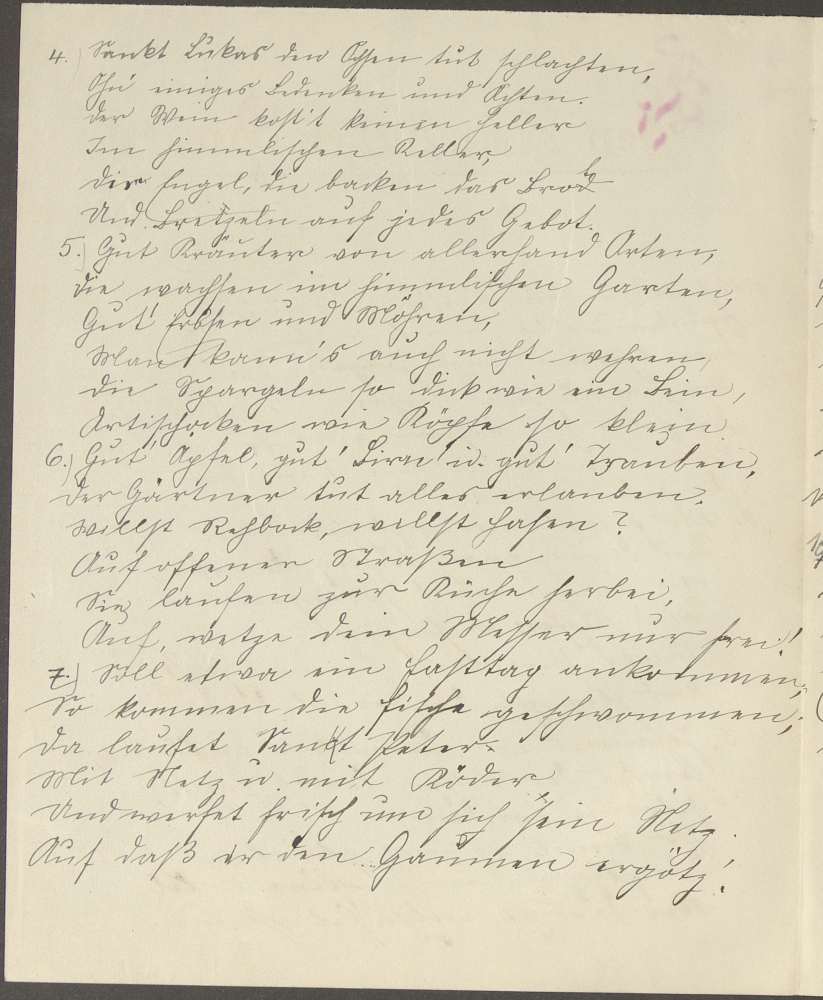 4.) Sankt Lukas den Ochsen tut schlachten,
Ohn' einiges Bedenken und Achten.
Der Wein kost't keinen Heller
Im himmlischen Keller,
Die Engel, die backen das Brot
Und Bretzeln auf jedes Gebot.
5.) Gut Kräuter von allerhand Arten,
Die wachsen im himmlischen Garten,
Gut' Erbsen und Möhren,
Man kann's auch nicht wehren,
Die Spargeln so dick wie ein Bein,
Artischocken wie Köpfe so klein
6.) Gut' Äpfel, gut' Birn' u. gut' Trauben,
Der Gärtner tut alles erlauben.
Willst Rehbock, willst Hasen?
Auf offener Straßen
Sie laufen zur Küche herbei,
Auf, wetze dein Messer nur frei!
7.) Soll etwa ein Fasttag ankommen,
So kommen die Fische geschwommen;
Da laufet Sankt Peter
Mit Netz u. mit Köder
Und werfet frisch um sich sein Netz.
Auf daß er den Gaumen ergötz'.